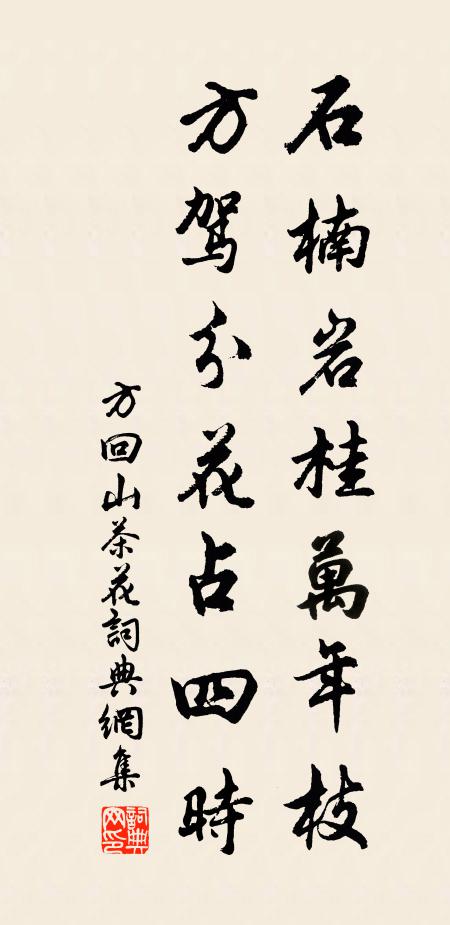 石楠岩桂萬年枝
方駕分花占四時
方回山茶花詞典網集
詞典
网印